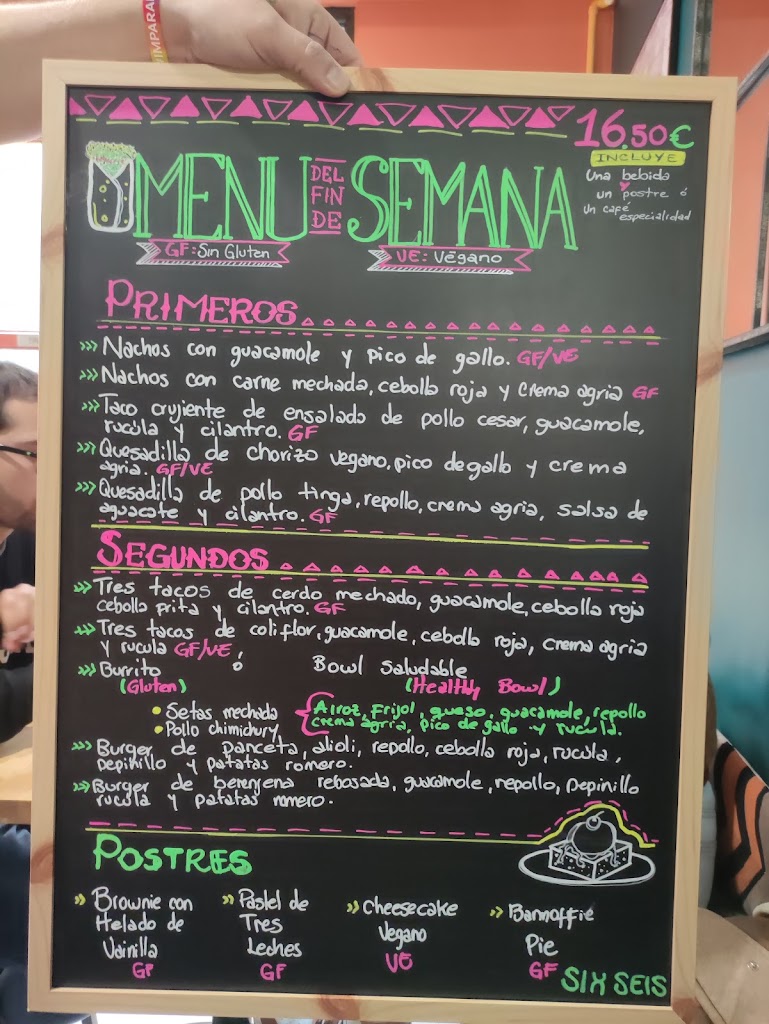 IMPARA
16,50€
INCLUYE
Una bebida
y
un postre ó
un café
especialidad
MENU DEL FIN DE SEMANA
GF: Sin Gluten
VE: Vegano
PRIMEROS
>>> Nachos con guacamole y pico de gallo. GF/VE
>>> Nachos con carne mechada, cebolla roja y crema agria GF
>>> Taco crujiente de ensalada de pollo cesar, guacamole,
rucúla y cilantro. GF
>>> Quesadilla de chorizo vegano, pico de gallo y crema
agria. GF/VE
>>> Quesadilla de pollo tinga, repollo, crema agria, salsa de
aguacate y cilantro. GF
SEGUNDOS
>>> Tres tacos de cerdo mechado, guacamole, cebolla roja
cebolla frita y cilantro. GF
>>> Tres tacos de coliflor, guacamole, cebolla roja, crema agria
y rucula GF/VE,
>>> Burrito ó Bowl Saludable
(Gluten) (Healthy Bowl)
• Setas mechada
• Pollo chimichury
Arroz, Frijol, queso, guacamole, repollo
crema agria, pico de gallo y rucula.
>>> Burger de panceta, alioli, repollo, cebolla roja, rucula,
pepinillo y patatas romero.
>>> Burger de berenjena rebosada, guacamole, repollo, pepinillo
rucula y patatas romero.
POSTRES
>> Brownie con
Helado de
Vainilla
GF
>> Pastel de
Tres
Leches
GF
>> Cheesecake
Vegano
VE
>> Bannoffie
Pie
GF
SIX SEIS